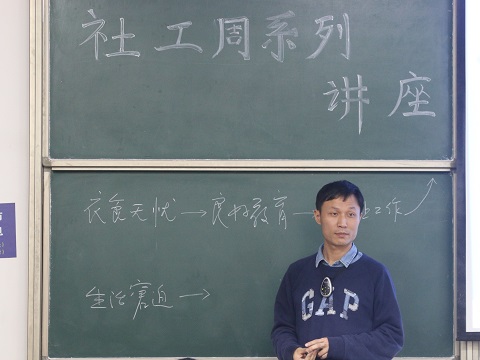 社工周系列
讲座
衣食无忧→良好教育→工作↗
生活窘迫→
GAP